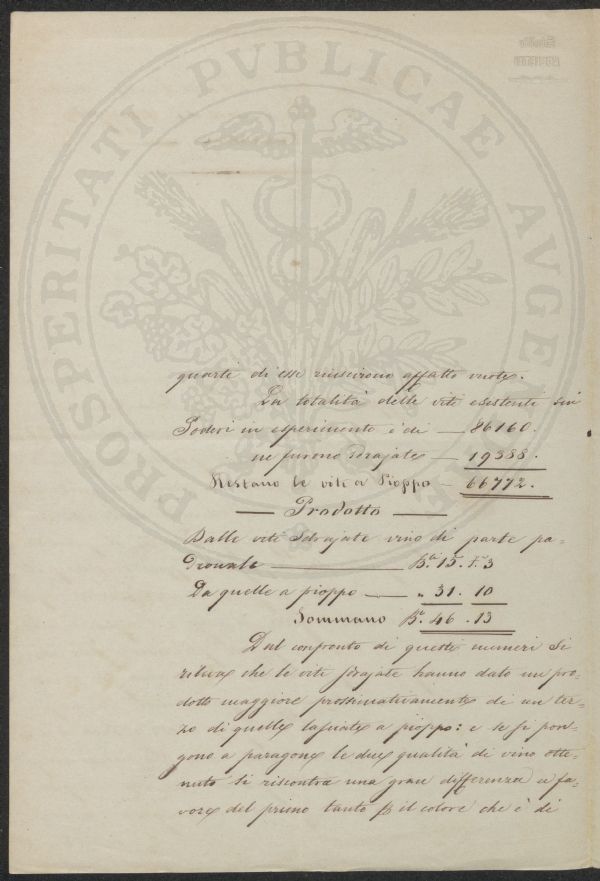 PROSPERITATI PVBLICAE AVGE
quarti di esse riuscirono affatto vuote.
La totalità delle viti esistenti sui
Poderi in esperimento è di — 86160.
ne furono sdrajate — 19388.
Restano le viti a Pioppo — 66772.
— Prodotto —
Dalle viti sdrajate vino di parte pa=
dronale — B.li 15. F. 3
Da quelle a pioppo — " 31. 10
Sommano B.li 46. 13
Dal confronto di questi numeri si
rileva che le viti sdrajate hanno dato un pro=
dotto maggiore prossimativamente di un ter=
zo di quelle lasciate a pioppo: e se si pon=
gono a paragone le due qualità di vino otte=
nuto si riscontra una gran differenza a fa=
vore del primo tanto p il colore che è di